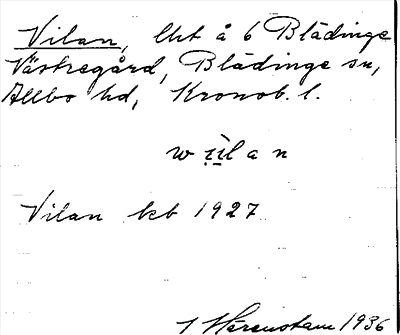 Vilan, lht å 6 Blädinge
Västregård, Blädinge sn,
Allbo hd, Kronob. l.
w ị̄ị̄l a n
Vilan kb 1927
1936